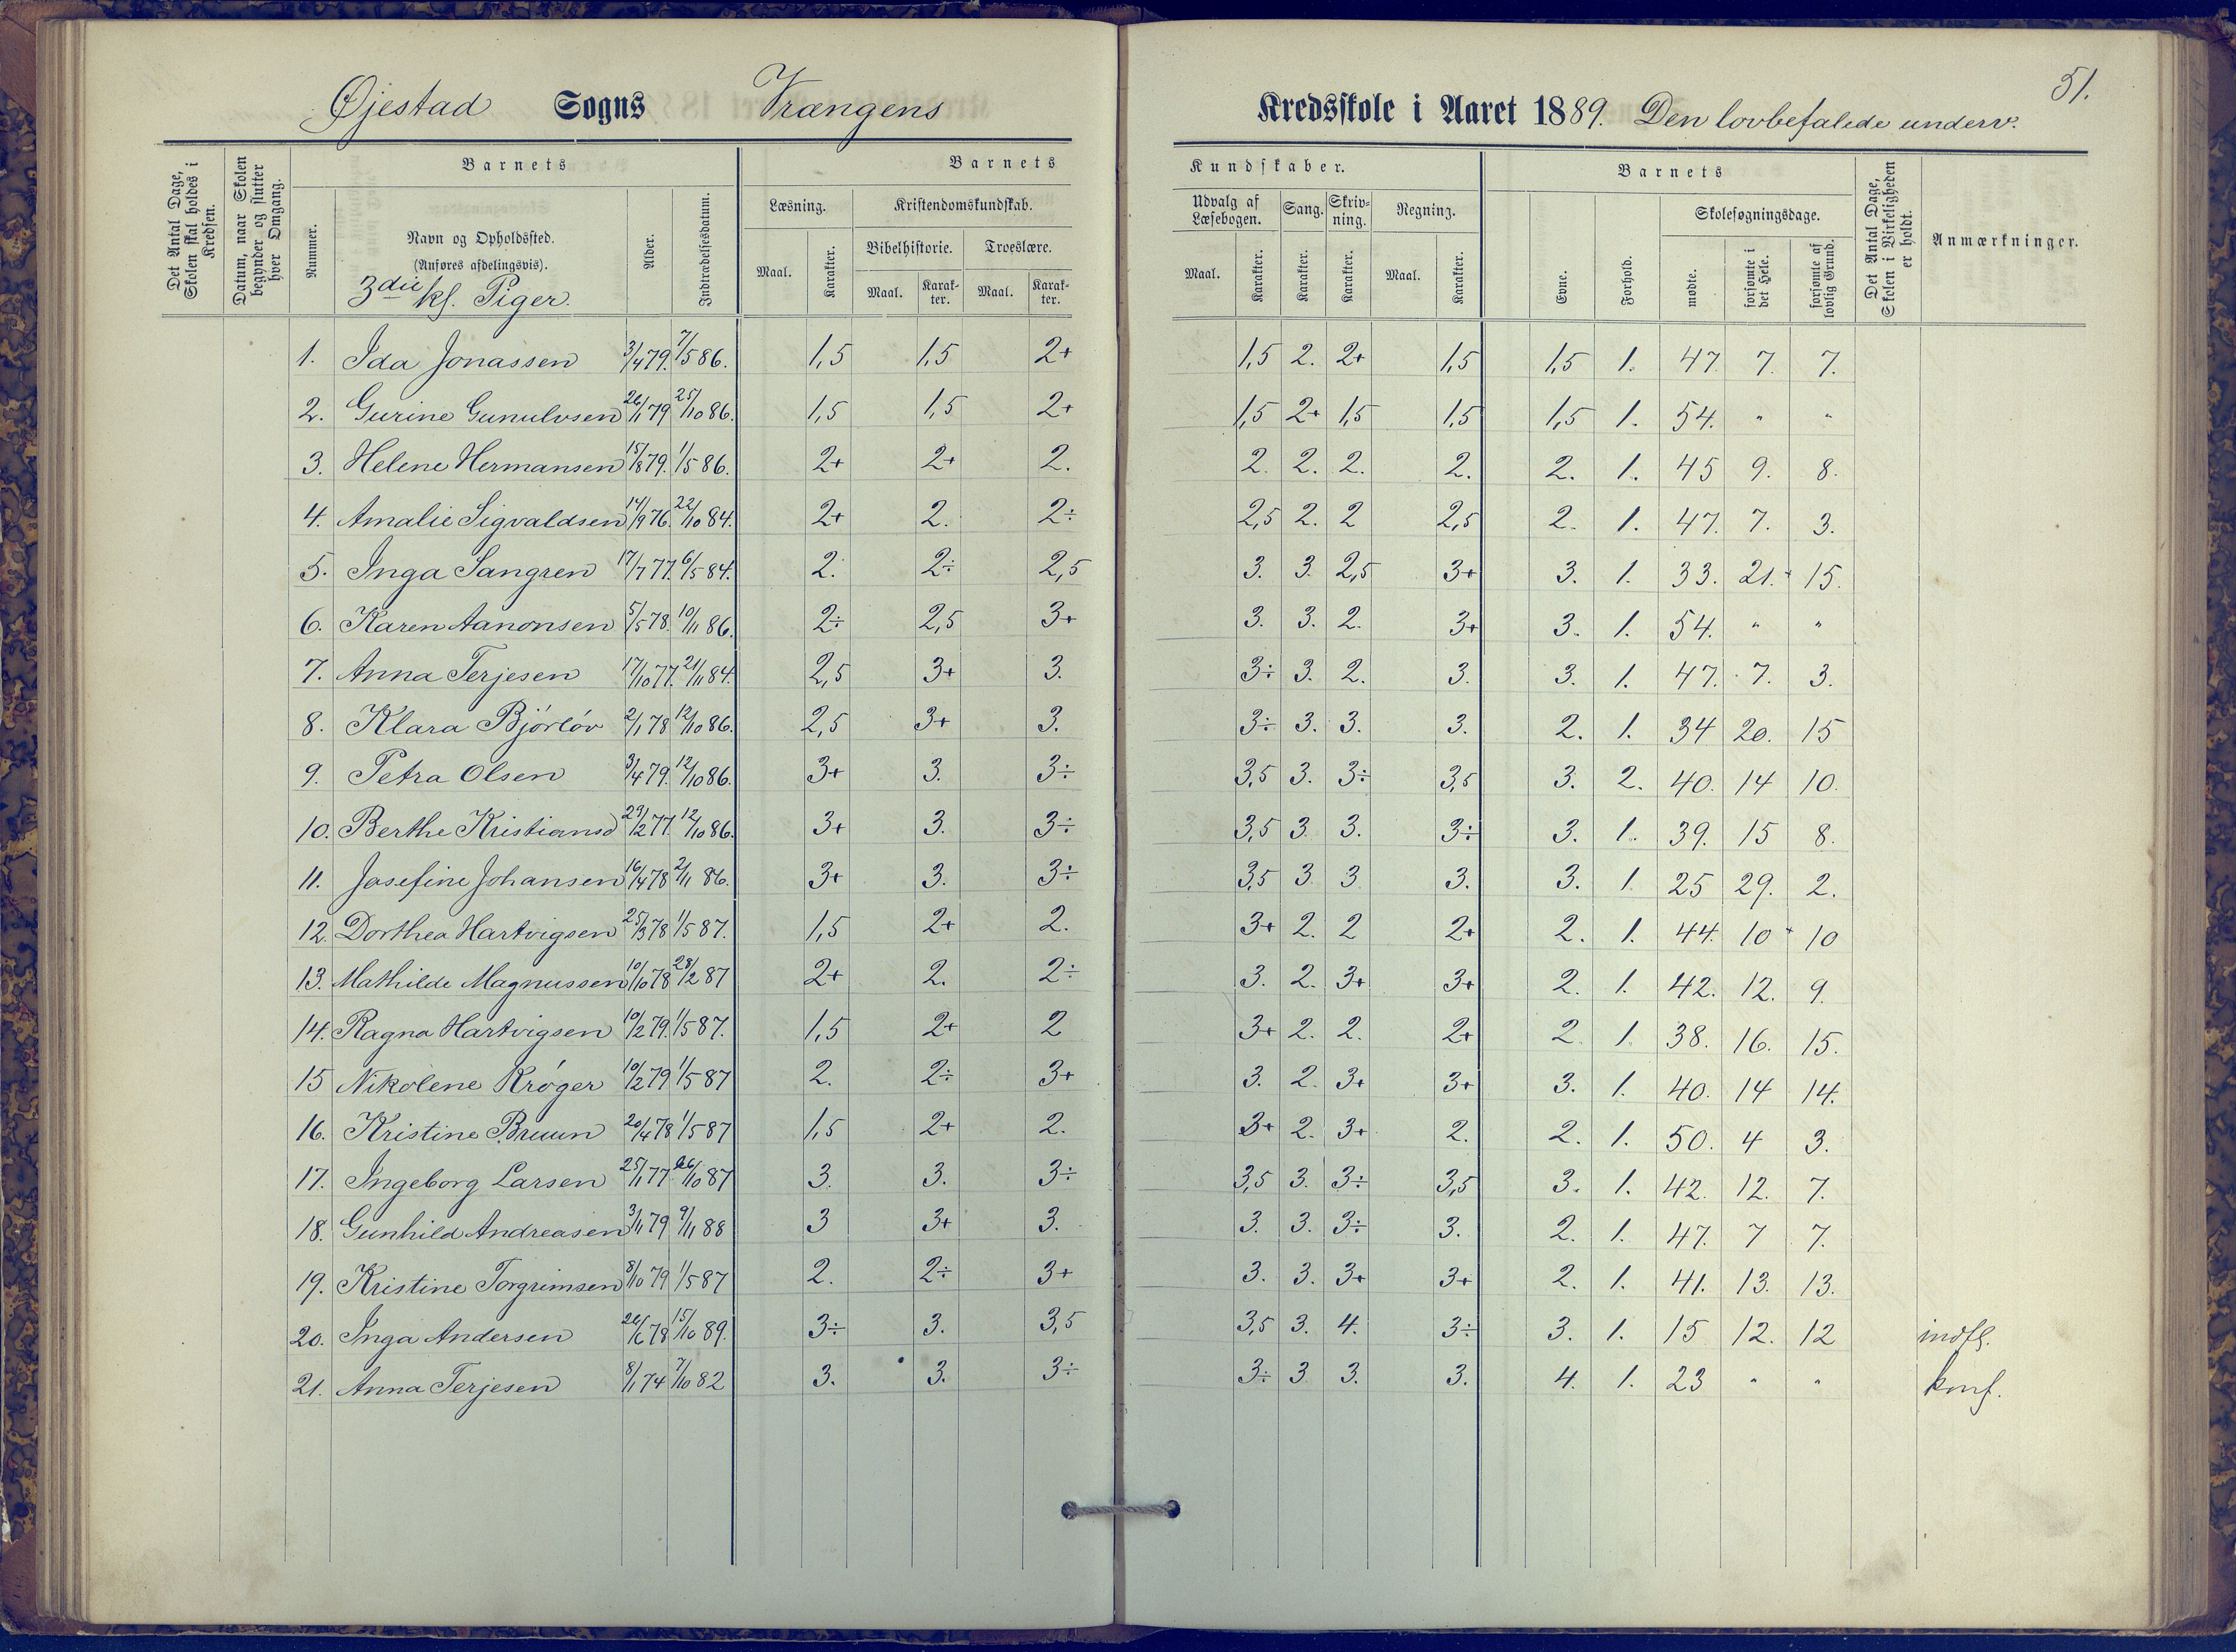 51.
Øjestad Sogns Vrængens Kredsskole i Aaret 1889. Den lovbefalede underv.
Det Antal Dage, Skolen skal holdes i Kredsen.
Datum, naar Skolen begynder og slutter hver Omgang.
Barnets
Nummer.
Navn og Opholdssted.
(Anføres afdelingsvis).
3die kl. Piger.
Alder.
Indtrædelsesdatum.
Barnets Kundskaber.
Læsning. Kristendomskundskab. Udvalg af Læsebogen. Sang. Skrivning. Regning.
Bibelhistorie. Troeslære.
Maal. Karakter. Maal. Karakter. Maal. Karakter. Maal. Karakter. Karakter. Karakter. Maal. Karakter.
Barnets
Evne. Forhold.
Skolesøgningsdage.
mødte. forsømte i det Hele. forsømte af lovlig Grund.
Det Antal Dage, Skolen i Virkeligheden er holdt.
Anmærkninger.
1. Ida Jonassen 3/4 79. 7/5 86. 1,5 1,5 2+ 1,5 2. 2+ 1,5 1,5 1. 47. 7. 7.
2. Gurine Gunulvsen 26/1 79 25/10 86. 1,5 1,5 2+ 1,5 2+ 1,5 1,5 1,5 1. 54. " "
3. Helene Hermansen 15/8 79. 1/5 86. 2+ 2+ 2. 2. 2. 2. 2. 2. 1. 45 9. 8.
4. Amalie Sigvaldsen 14/9 76. 22/10 84. 2+ 2. 2÷ 2,5 2. 2 2,5 2. 1. 47. 7. 3.
5. Inga Sangren 17/7 77. 6/5 84. 2. 2÷ 2,5 3. 3. 2,5 3+ 3. 1. 33. 21. 15.
6. Karen Aanonsen 5/5 78. 10/11 86. 2÷ 2,5 3+ 3. 3. 2. 3+ 3. 1. 54. " "
7. Anna Terjesen 17/10 77. 21/11 84. 2,5 3+ 3. 3÷ 3. 2. 3. 3. 1. 47. 7. 3.
8. Klara Bjórlóv 2/1 78 12/10 86. 2,5 3+ 3. 3÷ 3. 3. 3. 2. 1. 34 20. 15
9. Petra Olsen 3/4 79. 12/10 86. 3+ 3. 3÷ 3,5 3. 3÷ 3,5 3. 2. 40. 14 10.
10. Berthe Kristiansd 29/12 77. 12/10 86. 3+ 3. 3÷ 3,5 3 3. 3÷ 3. 1. 39. 15 8.
11. Josefine Johansen 16/4 78 2/11 86. 3+ 3. 3÷ 3,5 3 3 3. 3. 1 25 29. 2.
12. Dorthea Hartvigsen 25/3 78 1/5 87. 1,5 2+ 2. 3+ 2. 2 2+ 2. 1. 44. 10 10
13. Mathilde Magnussen 10/10 78 28/2 87 2+ 2. 2÷ 3. 2. 3+ 3+ 2. 1. 42. 12. 9.
14. Ragna Hartvigsen 10/2 79. 1/5 87. 1,5 2+ 2 3+ 2. 2. 2+ 2 1. 38. 16. 15.
15 Nikolene Króger 10/2 79 1/5 87 2. 2÷ 3+ 3. 2. 3+ 3+ 3. 1. 40. 14 14.
16. Kristine Bruun 20/4 78 1/5 87 1,5 2+ 2. 3+ 2. 3+ 2. 2. 1. 50. 4 3.
17. Ingeborg Larsen 25/1 77 26/10 87 3. 3. 3÷ 3,5 3. 3÷ 3,5 3. 1. 42. 12. 7.
18. Gunhild Andreasen 3/11 79 9/11 88 3 3+ 3. 3. 3. 3÷ 3. 2. 1. 47. 7 7.
19. Kristine Torgrimsen 8/10 79 1/5 87 2. 2÷ 3+ 3. 3. 3+ 3+ 2. 1. 41. 13. 13.
20. Inga Andersen 26/6 78 15/10 89. 3÷ 3. 3,5 3,5 3. 4. 3÷ 3. 1. 15 12. 12 indfl.
21. Anna Terjesen 8/1 74 7/10 82 3. 3. 3÷ 3÷ 3 3. 3. 4. 1. 23 " " konf.